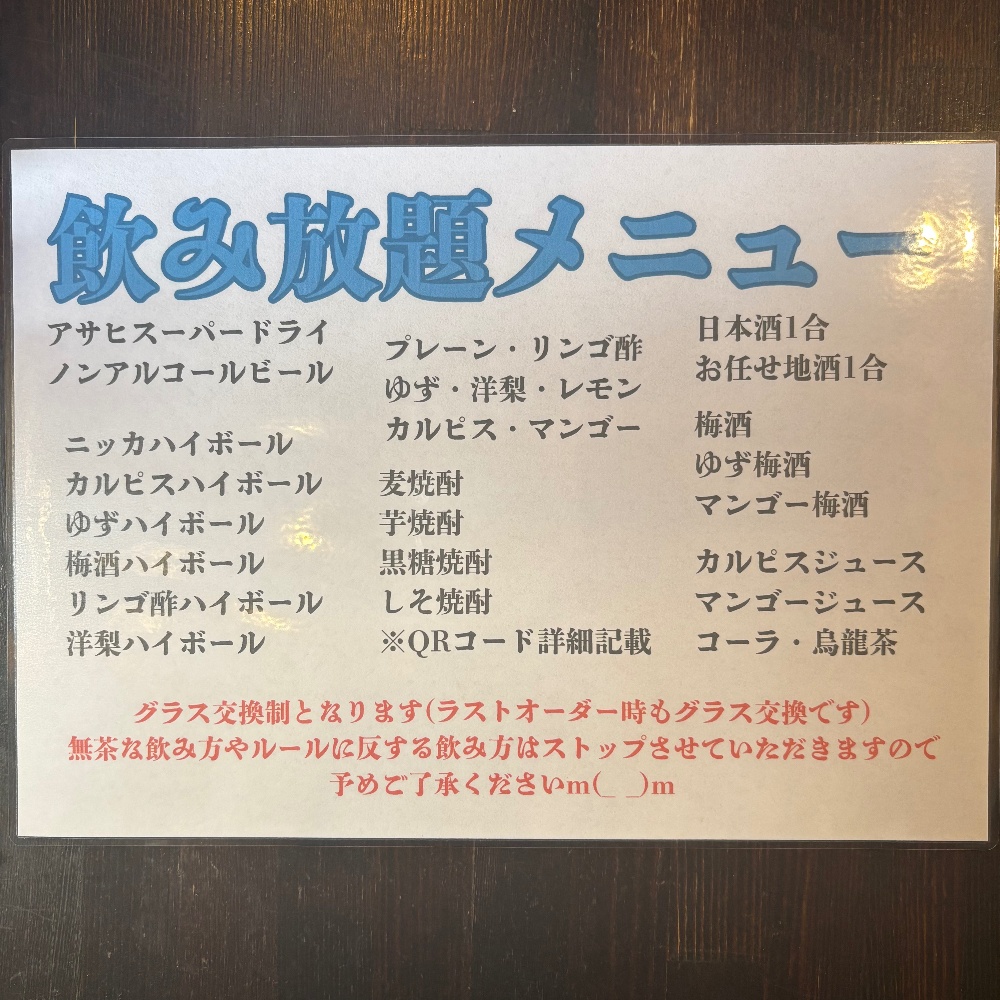 飲み放題メニュー
アサヒスーパードライ
ノンアルコールビール
ニッカハイボール
カルピスハイボール
ゆずハイボール
梅酒ハイボール
リンゴ酢ハイボール
洋梨ハイボール
プレーン・リンゴ酢
ゆず・洋梨・レモン
カルピス・マンゴー
麦焼酎
芋焼酎
黒糖焼酎
しそ焼酎
※QRコード詳細記載
日本酒1合
お任せ地酒1合
梅酒
ゆず梅酒
マンゴー梅酒
カルピスジュース
マンゴージュース
コーラ・烏龍茶
グラス交換制となります(ラストオーダー時もグラス交換です)
無茶な飲み方やルールに反する飲み方はストップさせていただきますので
予めご了承くださいm(_ _)m